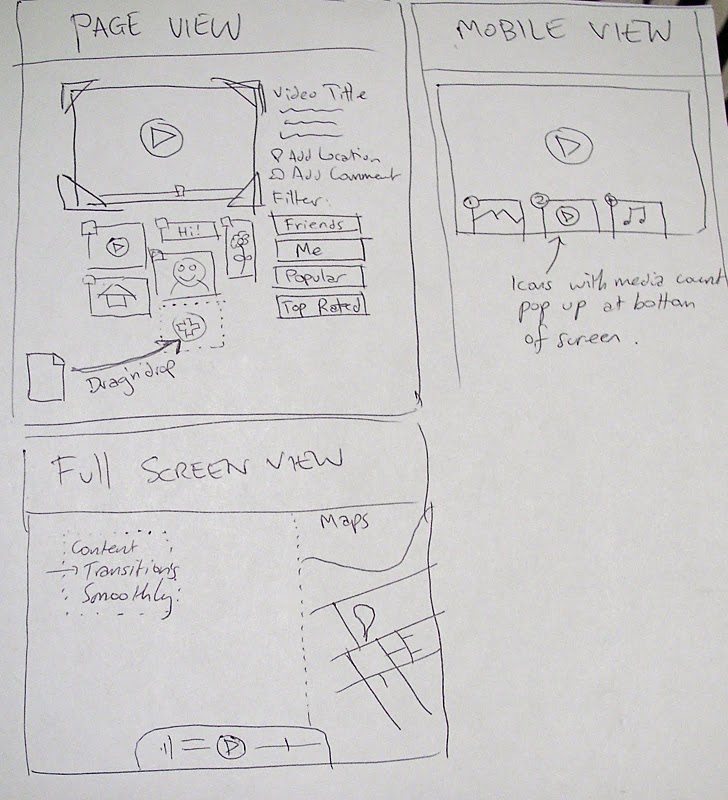 PAGE VIEW
Video Title
Add Location
Add Comment
Filter:
Friends
Me
Popular
Top Rated
Hi!
Drag'n'drop
MOBILE VIEW
1
2
Icons with media count
pop up at bottom
of screen.
Full SCREEN VIEW
Content
→ Transitions
Smoothly.
Maps